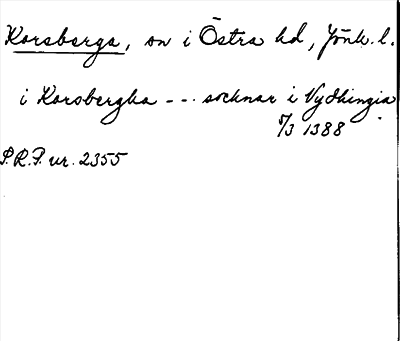 Korsberga, sn i Östra hd, Jönk. l.
i Korsbergha --- socknar i Vydhingia
5/3 1388
P.R.P. nr. 2355